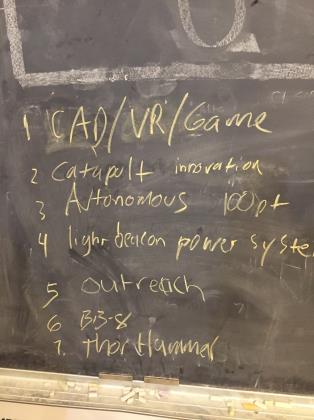 1 CAD/VR/Game
2 Catapult innovation
3 Autonomous 100pt
4 light beacon power syste
5 outreach
6 BB-8
7. Thor Hammer